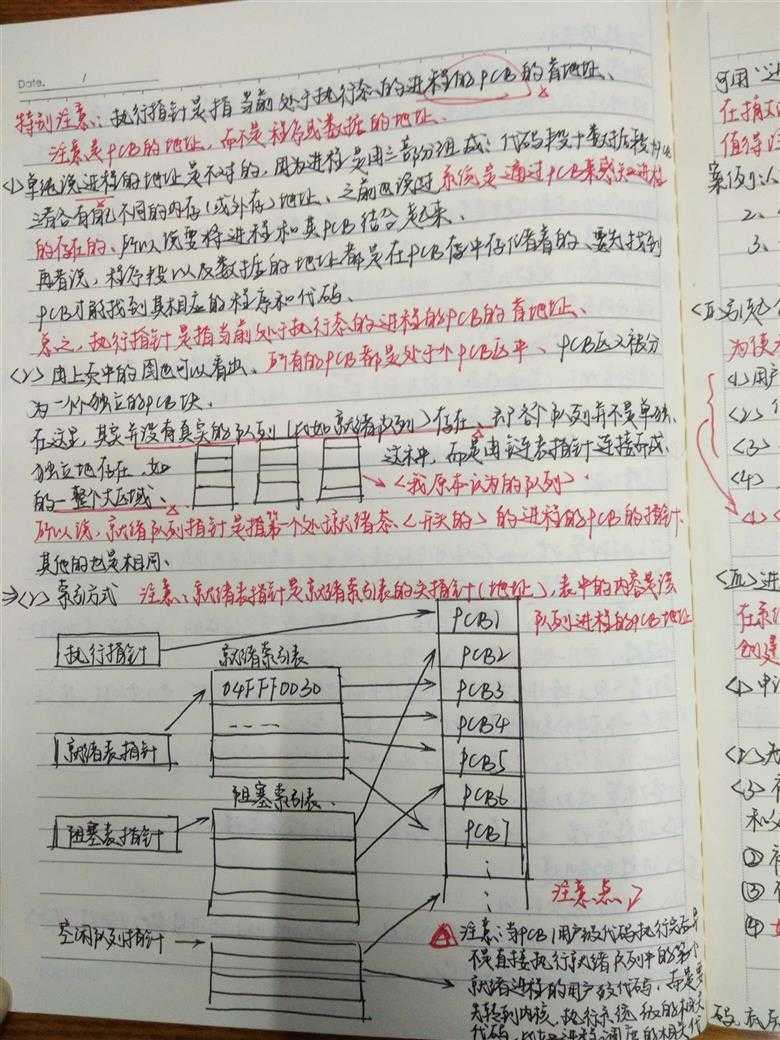 Date. 1
特别注意：执行指针是指当前处于执行态的进程的PCB的首地址、
注意是PCB的地址，而不是程序或数据的地址.
<1>单纯说进程的地址是不对的，因为进程是由三部分组成：代码段+数据段+PCB
三者各有自己不同的内存(或外存)地址、之前也说过系统是通过PCB来感知进程
的存在的、所以说要将进程和其PCB结合起来、
再者说，程序段以及数据段的地址都是在PCB存中存储着的、要先找到
PCB才能找到其相应的程序和代码、
总之，执行指针是指当前处于执行态的进程的PCB的首地址、
<2>由上页中的图也可以看出、所有的PCB都是处于个PCB区中、PCB区又被分
为一个个独立的PCB块、
在这里，其实并没有真实的队列(比如就绪队列)存在、即各个队列并不是单独、
独立地存在、如 这样、而是由链表指针连接而成、
的一整个大区域、 <我原本认为的队列>
所以说，就绪队列指针是指第一个处于就绪态、<开头的>的进程的PCB的指针、
其他的也是相同、
⇒<2>索引方式 注意：就绪表指针是就绪索引表的头指针(地址)，表中的内容是该
队列进程的PCB地址
执行指针
就绪索引表
04FFF0030
----
就绪表指针
阻塞索引表、
阻塞表指针
空闲队列指针
PCB1
PCB2
PCB3
PCB4
PCB5
PCB6
PCB7
⋮
⋮
注意点
注意：当PCB1用户级代码执行完后并
不是直接执行就绪队列中的第一个
就绪进程的用户级代码，而是要
先转到内核，执行系统级的相关
可用"进
值得
案例：
2、
3、
为使
<1>用户
<2>
<3>
<4>
<Ⅲ>进
在系
创建
<1>申
<2>为
<3>
②
③
④